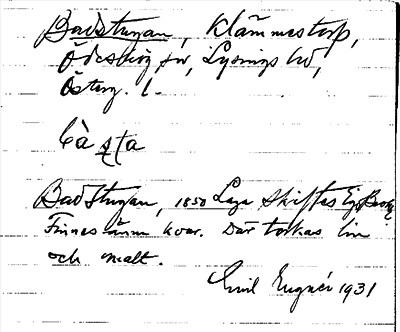 Badstugan, Klämmestorp,
Ödeshög sn, Lysings hd,
Österg. l.
bàsta
Badstugan, 1850 Laga Skiftes
Finnes ännu kvar. Där torkas lin
och malt.
Emil Engnér 1931